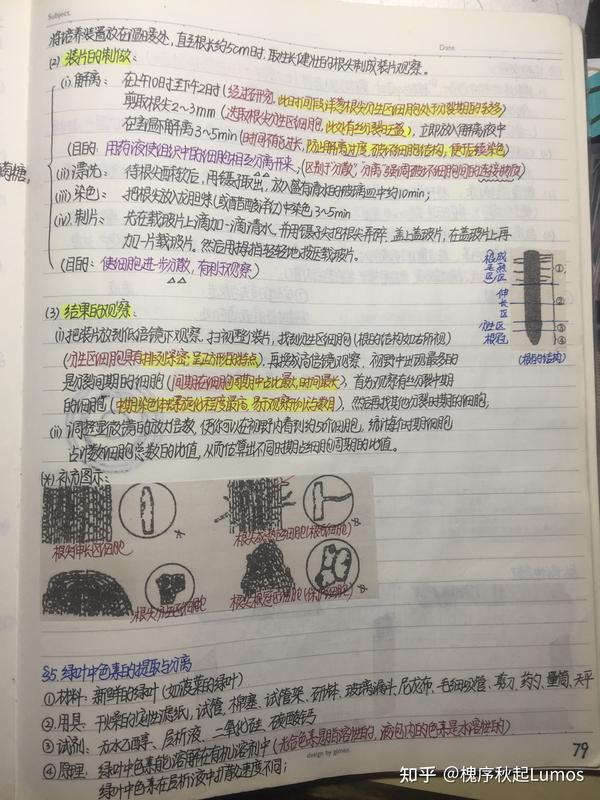 Subject.
Date.
将培养装置放在温暖处，直至根长约5cm时，取生长健壮的根尖制成装片观察。
(2) 装片的制作：
(i) 解离：在上午10时至下午2时(经过研究，此时间段洋葱根尖分生区细胞处于分裂期的较多)
剪取根尖2~3mm (选取根尖分生区细胞，此处有丝分裂旺盛)，立即放入解离液中
在室温下解离3~5min (时间不宜过长，防止解离过度，破坏细胞结构，使后续染色)
(目的：用药液使组织中的细胞相互分离开来，(区别于"分散"，"分离"强调破坏细胞间的连接物质)
(ii) 漂洗：待根尖酥软后，用镊子取出，放入盛有清水的玻璃皿中约10min；
(iii) 染色：把根尖放入龙胆紫(或醋酸洋红)中染色3~5min
(iv) 制片：先在载玻片上滴加一滴清水，并用镊子尖把根尖弄碎，盖上盖玻片，在盖玻片上再
加一片载玻片。然后用拇指轻轻地按压载玻片。
(目的：使细胞进一步分散，有利于观察)
根毛区
成熟区
①
伸长区
②
分生区
③
根冠
④
(根的结构)
(3) 结果的观察：
(i) 把装片放到低倍镜下观察，扫视整个装片，找到分生区细胞 (根的结构如右所视)
(分生区细胞具有排列紧密，呈正方形的特点)，再换成高倍镜观察，视野中出现最多的
是分裂间期的细胞 (间期在细胞周期中占比最大，时间最长)，首先观察有丝分裂中期
的细胞 (中期染色体螺旋化程度最高，易于观察形状与数目)，然后再找其他分裂时期的细胞；
(ii) 调整显微镜的放大倍数，使你可以在视野内看到约50个细胞，统计每个时期细胞
占计数细胞总数目的比值，从而估算出不同时期占细胞周期的比值。
(*) 补充图示：
根尖伸长区细胞
根尖成熟区细胞(根毛细胞)
根尖分生区细胞
根尖根冠区细胞(保护细胞)
§5. 绿叶中色素的提取与分离
① 材料：新鲜的绿叶 (如菠菜的绿叶)
② 用具：干燥的定性滤纸，试管，棉塞，试管架，研钵，玻璃漏斗，尼龙布，毛细吸管，剪刀，药勺，量筒，天平
③ 试剂：无水乙醇、层析液、二氧化硅、碳酸钙
④ 原理：绿叶中色素能溶解在有机溶剂中 (光合色素是脂溶性的，液泡内的色素是水溶性的)
绿叶中色素在层析液中扩散速度不同；
design by gimen
79
知乎 @槐序秋起Lumos